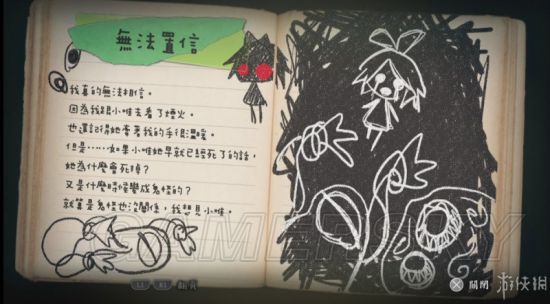 無法置信
我真的無法相信。
因為我跟小唯去看了煙火。
也還記得她牽著我的手很溫暖。
但是……如果小唯她早就已經死了的話,
她為什麼會死掉?
又是什麼時候變成鬼怪的?
就算是鬼怪也沒關係,我想見小唯。
GAMERSKY
L1 R1 翻頁
關閉
游侠网